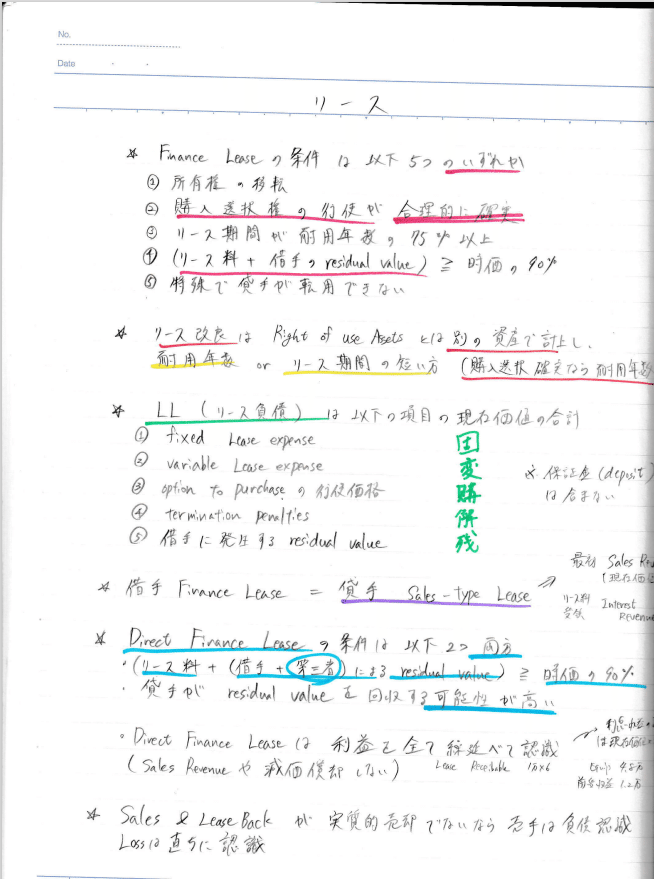 No.
Date
リース
☆ Finance Lease の条件は以下5つのいずれか
① 所有権の移転
② 購入選択権の行使が合理的に確実
③ リース期間が耐用年数の75%以上
④ (リース料 + 借手の residual value) ≧ 時価の90%
⑤ 特殊で貸手が転用できない
☆ リース改良は Right of use Assets とは別の資産で計上し、
耐用年数 or リース期間の短い方 (購入選択確定なら耐用年数
☆ LL (リース負債) は以下の項目の現在価値の合計
① fixed Lease expense
② variable Lease expense
③ option to purchase の行使価格
④ termination penalties
⑤ 借手に発生する residual value
固
変
購
解
残
※ 保証金 (deposit)
は含まない
☆ 借手 Finance Lease = 貸手 Sales-type Lease
最初 Sales Rev
(現在価値
リース料
受領
Interest
Revenue
☆ Direct Finance Lease の条件は以下2つ両方
・(リース料 + (借手 + 第三者) による residual value) ≧ 時価の90%
・貸手が residual value を回収する可能性が高い
・Direct Finance Lease は利益を全て繰延べて認識
(Sales Revenue や減価償却しない)
Lease Receivable 1万×6
は現在価値
Equip 4.8万
前受収益 1.2万
☆ Sales & Lease Back が実質的売却でないなら売手は負債認識
Loss は直ちに認識